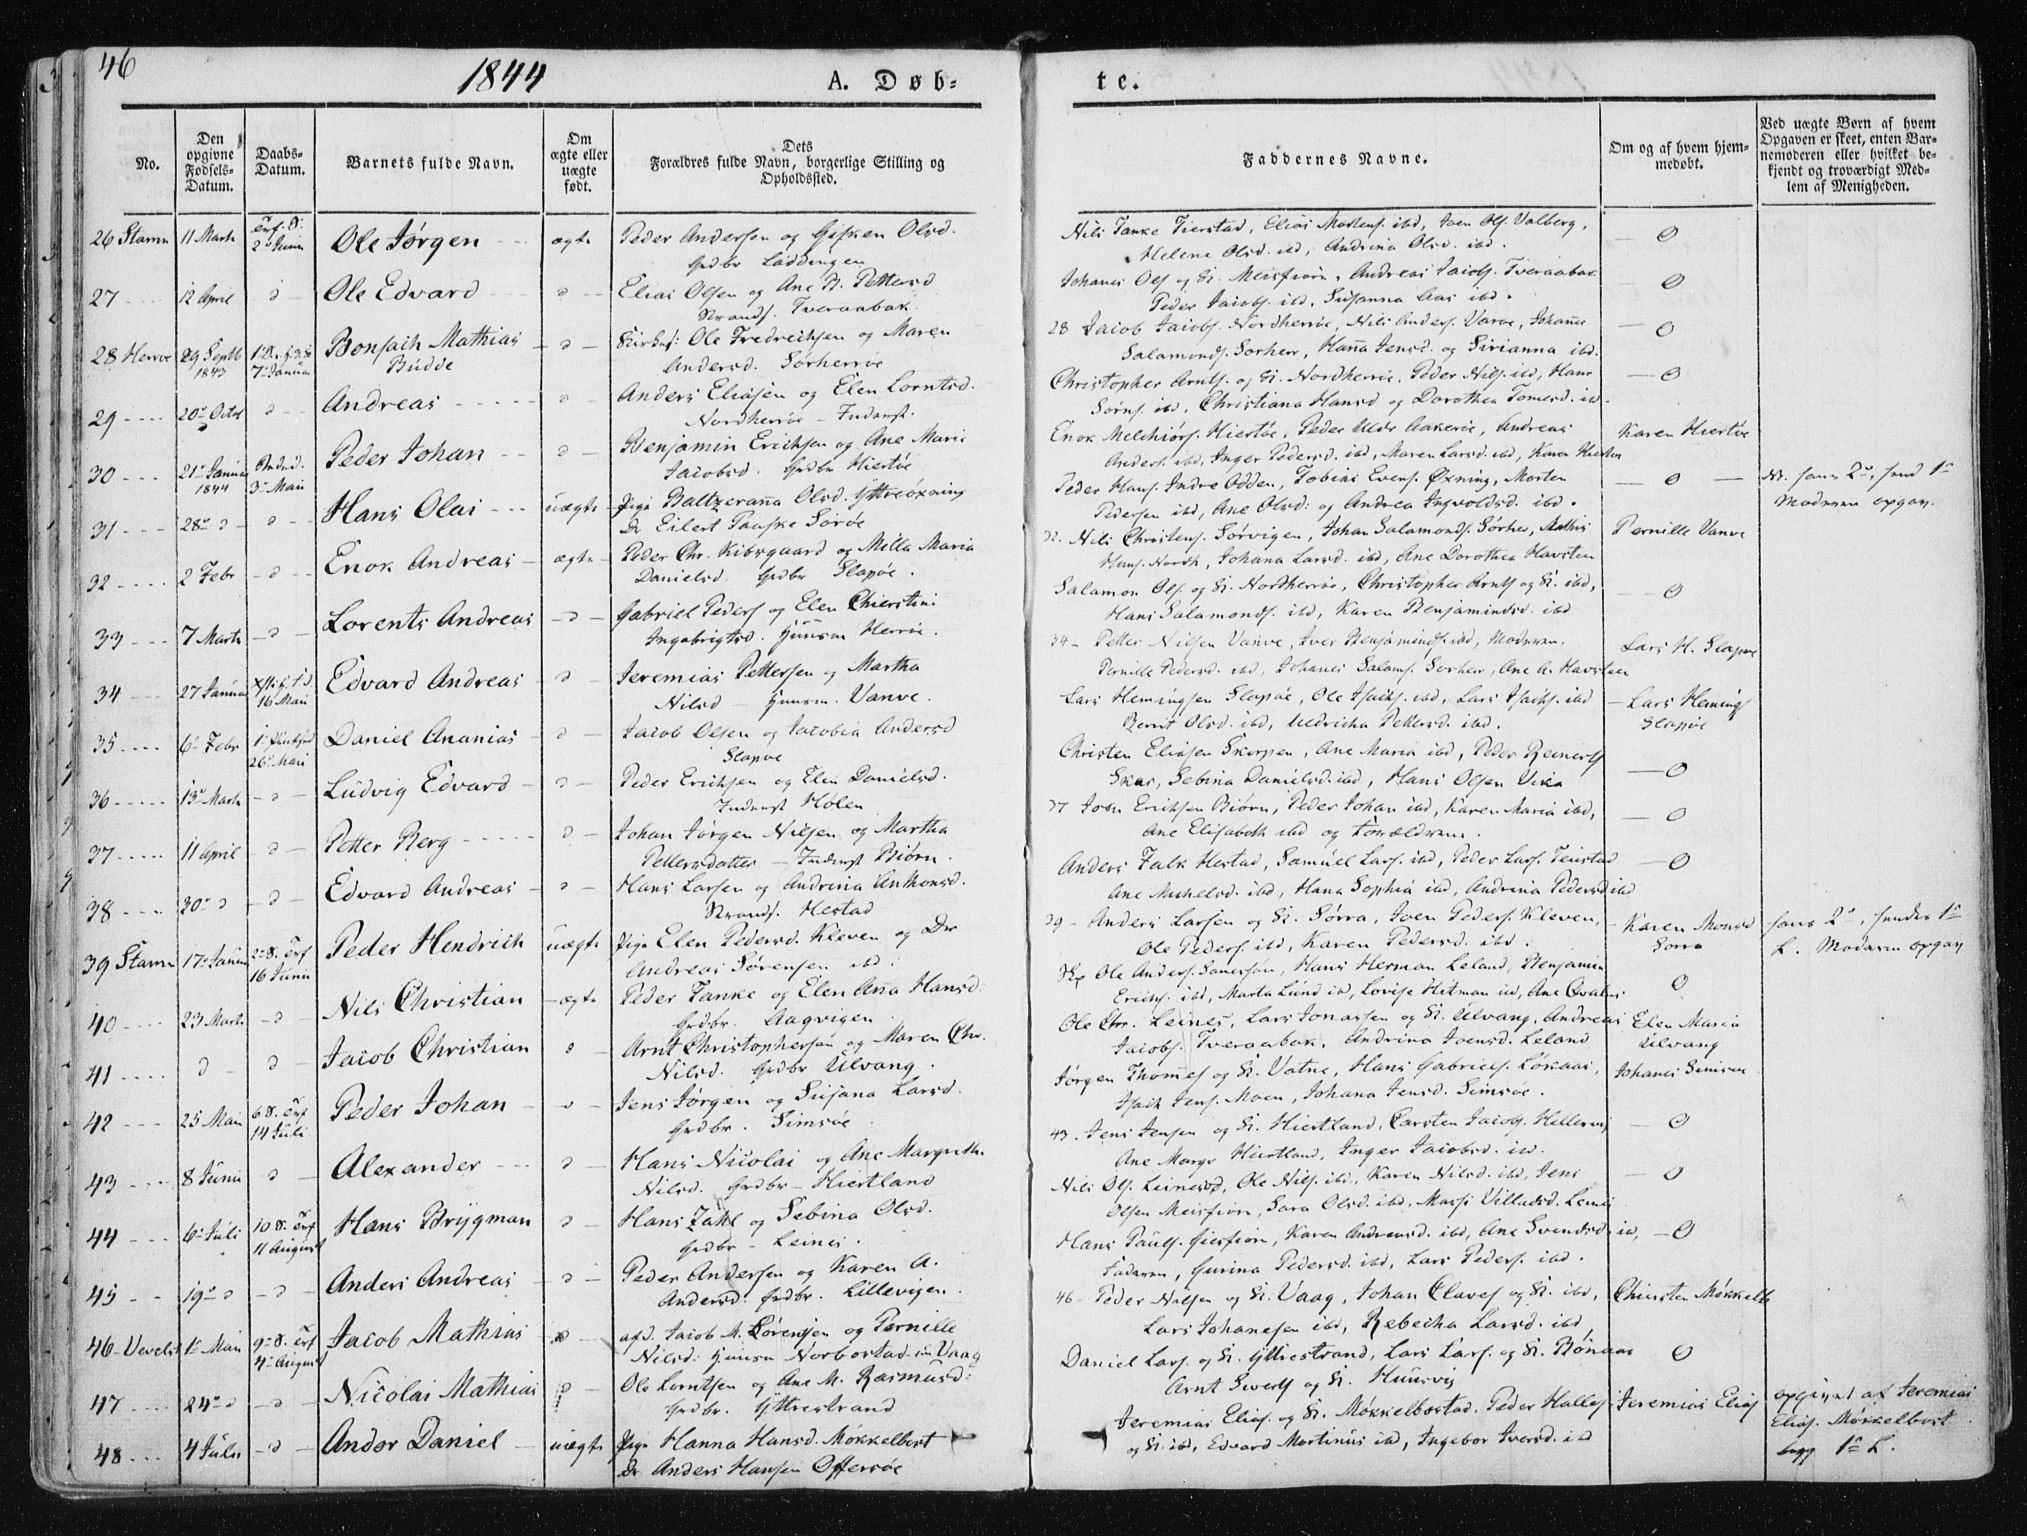 46
1844
A. Døb-
te.
No.
Den opgivne Fødsels-Datum.
Daabs-Datum.
Barnets fulde Navn.
Om ægte eller uægte født.
Dets
Forældres fulde Navn, borgerlige Stilling og
Opholdssted.
Faddernes Navne.
Om og af hvem hjem-
medøbt.
Ved uægte Børn af hvem
Opgaven er skeet, enten Bar-
nemoderen eller hvilket be-
kjendt og troværdigt Med-
lem af Menigheden.
26 Stamn 11 Marts 2 Juni Ole Jørgen ægte Peder Andersen og Gisken Olsd.
Grdbr Laddingen
Nils Tanke Fierstad, Elias Mortens. ibd, Joen Ols. Valberg,
Helene Olsd. ibd, Andrina Olsd. ibd. — 0
27 12 April Ole Edvard Elias Olsen og Ane B. Pettersd
Strands. Tveraabak.
Johanes Ols og K. Meisfiorn, Andreas Jacobs. Tveraabak
Peder Jacobs. ibd, Susanna Aas ibd. — 0
28 Herrøe 29 Septb 1843 7 Januar Bonsach Mathias
Budde
Ole Fredrechsen og Maren
Andersd. Sørherrøe
28 Jacob Jacobs. Nordherrøe, Nils Anders. Varøe, Johannes
Salamons. Sørherr, Hanna Jensd. og Sirianna ibd. — 0
29 20 Octob Andreas Anders Eliasen og Elen Lorntsd.
Nordherrøe — Inderst.
Christopher Arnts. og K. Nordherrøe, Peder Nils. ibd, Hans
Sørns. ibd, Christiana Hansd og Dorothea Tomesd. ibd. — 0
30 21 Januar 1844 3 Mai Peder Johan Benjamin Erichsen og Ane Marie
Jacobsd. Grdbr Hiertøe
Enok Melchiors. Hiertøe, Peder Aakerøe, Andreas
Anders. ibd, Inger Pedersd. ibd, Maren Larsd. ibd, Karen Hiertøe
Karen Hiertøe
31 28 Hans Olai uægte Pige Baltzeranna Olsd. Yttreøxning
Dr Eilert Paaske Sørøe
Peder Hans. Indre Odden, Tobias Evens. Øxning, Morten
Pedersen ibd, Ane Olsd. og Andrea Ingvoldsd. ibd. — 0 —
Moderen opgav.
32 2 Febr Enok Andreas ægte Peder Chr. Kibsgaard og Milla Maria
Danielsd. Grdbr Slapøe.
32. Nils Christens. Sørvigen, Johan Salamonds. Sørher, Mathis
Hans. Nordh, Johana Larsd. ibd, Ane Dorothea Havsten
Pernille Vanve
33 7 Marts Lorents Andreas Gabriel Peders og Elen Chierstine
Ingebrigtsd. Huusm Herrøe.
Salamon Ols. og K. Nordherrøe, Christopher Arnts og K. ibd,
Hans Salamonds. ibd, Karen Benjaminsd. ibd — 0
34 27 Januar 16 Mai Edvard Andreas Jeremias Pettersen og Martha
Nilsd — Huusm. Vanve.
34 — Petter Nilsen Vanve, Iver Benjamins. ibd, Moderen.
Pernille Pedersd. ibd, Johanes Salams. Sørherr, Ane A. Havsteen
Lars H. Slapøe
35 6 Febr 26 Mai Daniel Ananias Jacob Olsen og Jacobia Andersd
Slapøe
Lars Hemingsen Slapøe, Ole Isachs. ibd, Lars Isachs. ibd
Berrit Olsd. ibd, Uldricha Pettersd. ibd.
Lars Hemings
Slapøe
36 13 Marts Ludvig Edvard Peder Erichsen og Elen Danielsd.
Inderst Holen
Christen Eliasen Skorpen, Ane Maria ibd, Peder Reinerts
Skar, Sebina Danielsd. ibd, Hans Olsen Vika — 0
37 11 April Petter Berg Johan Jørgen Nilsen og Martha
Pettersdatter — Inderst Biørn.
37 Joen Erichsen Biørn, Peder Johan ibd, Karen Maria ibd,
Ane Elisabeth ibd og Forældrene. — 0
38 30 Edvard Andreas Hans Larsen og Andrina Anthonsd.
Strands. Hestad
Anders Falk Hestad, Samuel Lars. ibd, Peder Lars. Teistad
Ane Michelsd. ibd, Hana Sophia ibd, Andrina Pedersd ibd — 0
39 Stamn 17 Januar 16 Juni Peder Hendrich uægte Pige Elen Pedersd. Kleven og Dr
Andreas Sørensen ibd.
39 — Anders Larsen og K. Sørra, Joen Peders. Kleven,
Ole Peders. ibd, Karen Pedersd. ibd.
Karen Monsd
Sørra
Moderen opgav
40 23 Marts Nils Christian ægte Peder Tanke og Elen Ana Hansd.
Grdbr. Aagvigen
Ole Anders. Sanersøen, Hans Herman Leland, Benjamin
Erichs. ibd, Marta Lund ibd, Lovise Hetman ibd, Ane Qvalnes 0
41 Jacob Christian Arnt Christophersen og Maren Chr.
Nilsd. Grdbr Ulvang.
Ole Chr. Leines, Lars Jonassen og K. Ulvang, Andreas
Jacobs. Tveraabak, Andrina Joensd. Leland
Elen Maria
Ulvang
42 25 Mai 14 Juli Peder Johan Jens Jørgen og Susana Larsd.
Grdbr. Simsøe
Jørgen Thomes og K. Vatne, Hans Gabriels. Løkaas,
Isach Jens. Moen, Johana Jensd. Simsøe.
Johanes Simsøe
43 8 Juni Alexander Hans Nicolai og Ane Margreth.
Nilsd. Grdbr — Hiertland
43. Jens Jensen og K. Hiertland, Carsten Jacobs. Hellesvi,
Ane Margr Hiertland, Inger Jacobsd. ibd. — 0
44 6 Juli 11 August Hans Brygman Hans Zahl og Sebina Olsd.
Grdbr — Leines.
Nils Ols. Leinesod, Ole Nils. ibd, Karen Nilsd. ibd, Jens
Olsen Meisfiorn, Sara Olsd. ibd, Marsi Villadsd. Leines — 0
45 19 Anders Andreas Peder Andersen og Karen A.
Andersd. Grdbr. Lillevigen.
Hans Pauls. Giesfiorn, Karen Andersd. ibd, Ane Svendsd. ibd,
Faderen, Gurina Pedersd. ibd, Lars Peders. ibd. — 0
46 Vevelst 1 Mai 4 August Jacob Mathias afd. Jacob M. Sørensen og Pernille
Nilsd. Huusm Norbostad in Vaag
46 — Peder Nilsen og K. Vaag, Johan Claves og K. ibd,
Lars Johanesen ibd, Rebecha Larsd. ibd
Chiersten Møkkelb
47 24 Nicolai Mathias Ole Lorntsen og Ane M. Rasmusd.
Grdbr. Yttrestrand
Daniel Lars. og K. Yttrestrand, Lars Lars. og K. Rønaas
Arnt Siverts og K. Huusvig 0
48 4 Juli Andor Daniel uægte Pige Hanna Hansd. Møkkelbost
Dr Anders Hansen Offersøe
Jeremias Elias. og K. Møkkelbostad. Peder Halles.
og K. ibd, Edvard Martinus ibd, Ingebor Iversd. ibd
Jeremias Elias
opgivet af Jeremias
Elias. Møkkelbost